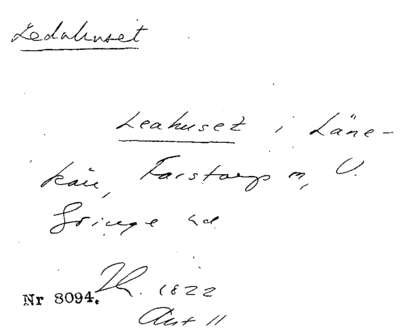 Ledahuset
Leahuset i Läne-
kärr, Farstorp sn, V.
Göinge hd
Nr 8094. Th. 1822
Akt 11